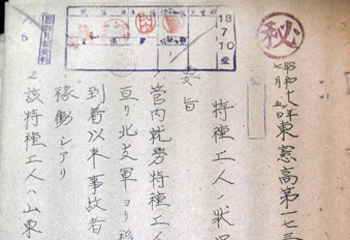 秘
昭和十八年東憲高第一七三
七月
特種工人ノ状況
18
7.10
受
要旨
管内就労特種工人
亘リ北支軍ヨリ移
到着以来事故者
稼働シアリ
2 該特種工人ハ山東